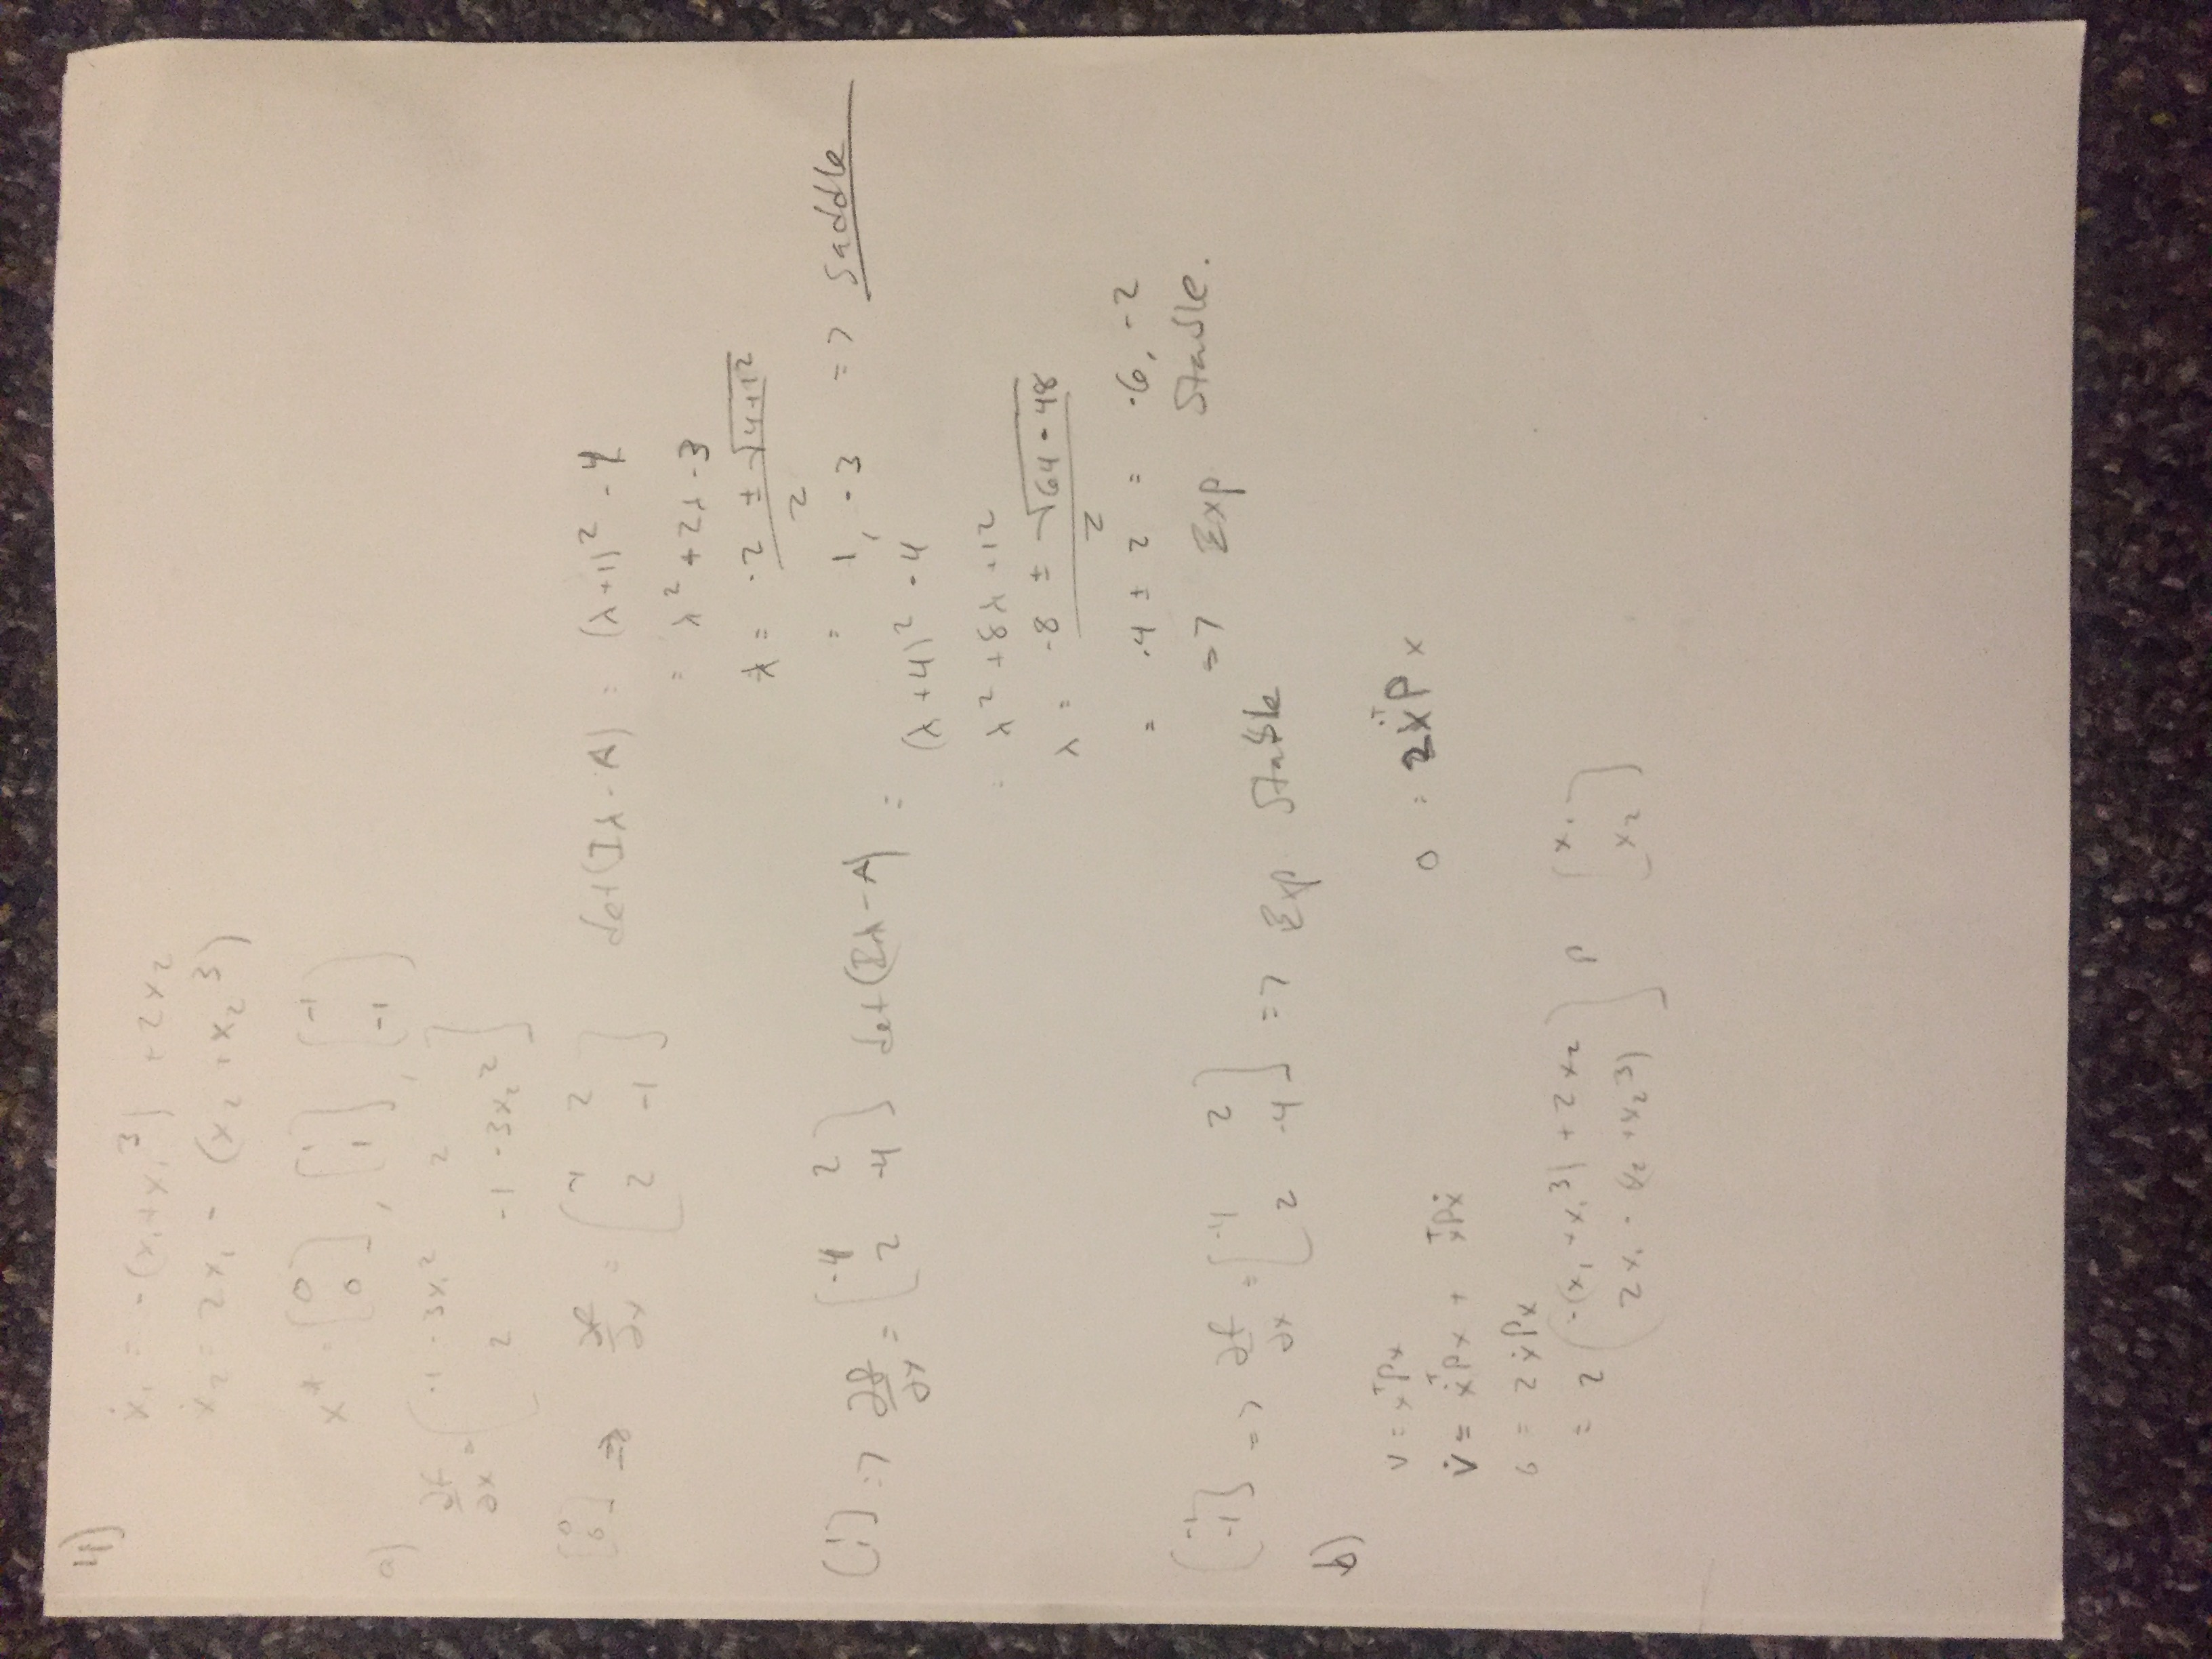 4)
ẋ₁ = -(x₁+x₁³) + 2x₂
ẋ₂ = 2x₁ - (x₂ + x₂³)
x* = [0 0], [1 1], [-1 -1]
a)
∂f/∂x = [-1 -3x₁² 2
2 -1 -3x₂²]
[0 0] => ∂f/∂x = [-1 2
2 -1] det(Iλ - A) = (λ+1)² - 4
= λ² + 2λ - 3
λ = -2 ± √4+12 / 2
= 1, -3 => saddle
[1 1] => ∂f/∂x = [-4 2
2 -4] det(Iλ - A) =
(λ+4)² - 4
= λ² + 8λ + 12
λ = -8 ± √64-48 / 2
= -4 ± 2 = -6, -2
=> Exp Stable.
[-1 -1] => ∂f/∂x = [-4 2
2 -4] => Exp. Stable
b)
V = xᵀPx
V̇ = ẋᵀPx + xᵀPẋ
0 = 2ẋPx
0 = 2ẋᵀPx
= 2 [-(x₁ + x₁³) + 2x₂
2x₁ - (x₂ + x₂³)] P [x₁
x₂]